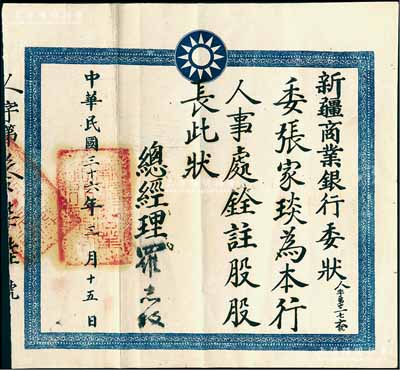 新疆商業銀行委狀
委張家琰為本行
人事處銓註股股
長此狀
總經理羅志
中華民國三十六年三月十五日
人字第
號